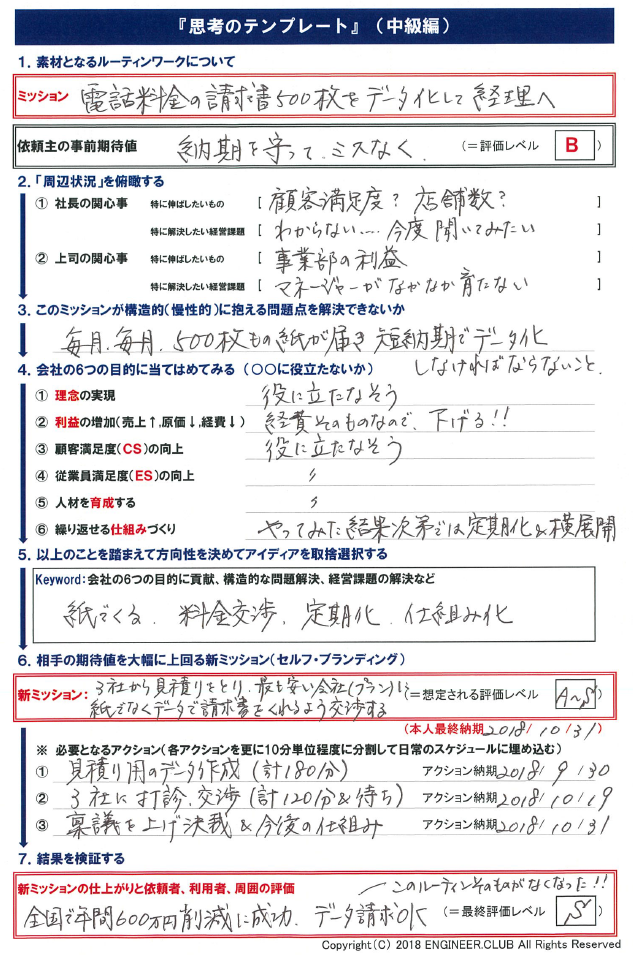 『思考のテンプレート』（中級編）
1. 素材となるルーティンワークについて
ミッション 電話料金の請求書500枚をデータ化して経理へ
依頼主の事前期待値 納期を守って、ミスなく。 （＝評価レベル B ）
2. 「周辺状況」を俯瞰する
① 社長の関心事 特に伸ばしたいもの [ 顧客満足度？ 店舗数？ ]
特に解決したい経営課題 [ わからない…今度聞いてみたい ]
② 上司の関心事 特に伸ばしたいもの [ 事業部の利益 ]
特に解決したい経営課題 [ マネージャーがなかなか育たない ]
3. このミッションが構造的（慢性的）に抱える問題点を解決できないか
毎月、毎月、500枚もの紙が届き短納期でデータ化
しなければならないこと。
4. 会社の6つの目的に当てはめてみる（〇〇に役立たないか）
① 理念の実現 役に立たなそう
② 利益の増加（売上↑,原価↓,経費↓） 経費そのものなので、下げる!!
③ 顧客満足度（CS）の向上 役に立たなそう
④ 従業員満足度（ES）の向上 〃
⑤ 人材を育成する 〃
⑥ 繰り返せる仕組みづくり やってみた結果次第では定期化&横展開
5. 以上のことを踏まえて方向性を決めてアイディアを取捨選択する
Keyword：会社の6つの目的に貢献、構造的な問題解決、経営課題の解決など
紙でくる、料金交渉、定期化、仕組み化
6. 相手の期待値を大幅に上回る新ミッション（セルフ・ブランディング）
新ミッション： 3社から見積りをとり、最も安い会社(プラン)に （＝想定される評価レベル A～S ）
紙でなくデータで請求書をくれるよう交渉する
（本人最終納期 2018/10/31）
※ 必要となるアクション（各アクションを更に10分単位程度に分割して日常のスケジュールに埋め込む）
① 見積り用のデータ作成（計180分） アクション納期 2018/9/30
② 3社に打診、交渉（計120分&待ち） アクション納期 2018/10/19
③ 稟議を上げ決裁&今後の仕組み アクション納期 2018/10/31
7. 結果を検証する
新ミッションの仕上がりと依頼者、利用者、周囲の評価 このルーティンそのものがなくなった!!
全国で年間600万円削減に成功、データ請求OK （＝最終評価レベル S ）
Copyright（C） 2018 ENGINEER.CLUB All Rights Reserved